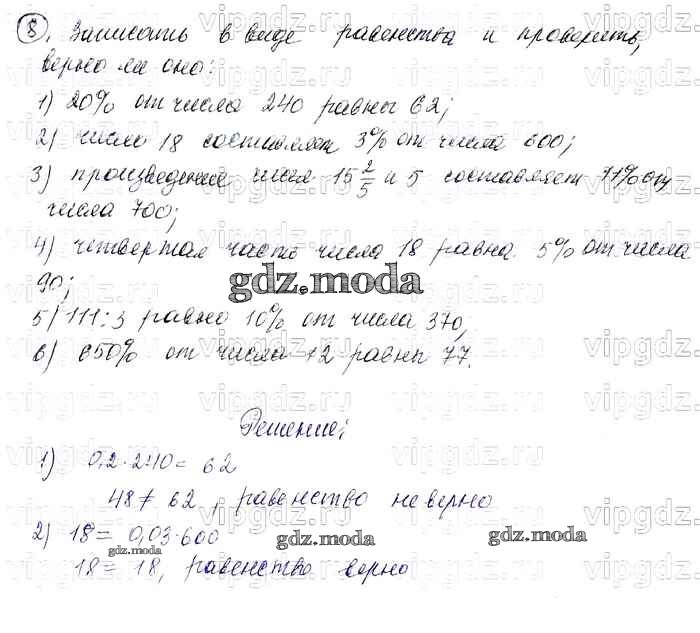 8. Записать в виде равенства и проверить,
верно ли оно:
1) 20% от числа 240 равны 62;
2) число 18 составляет 3% от числа 600;
3) произведение чисел 15 2/5 и 5 составляет 77% от
числа 700;
4) четвертая часть числа 18 равна 5% от числа
90;
gdz.moda
5) 111:3 равно 10% от числа 370,
6) 650% от числа 12 равны 77.
Решение:
1) 0,2·240 = 62
48 ≠ 62, равенство неверно
2) 18 = 0,03·600
gdz.moda
gdz.moda
18 = 18, равенство верно